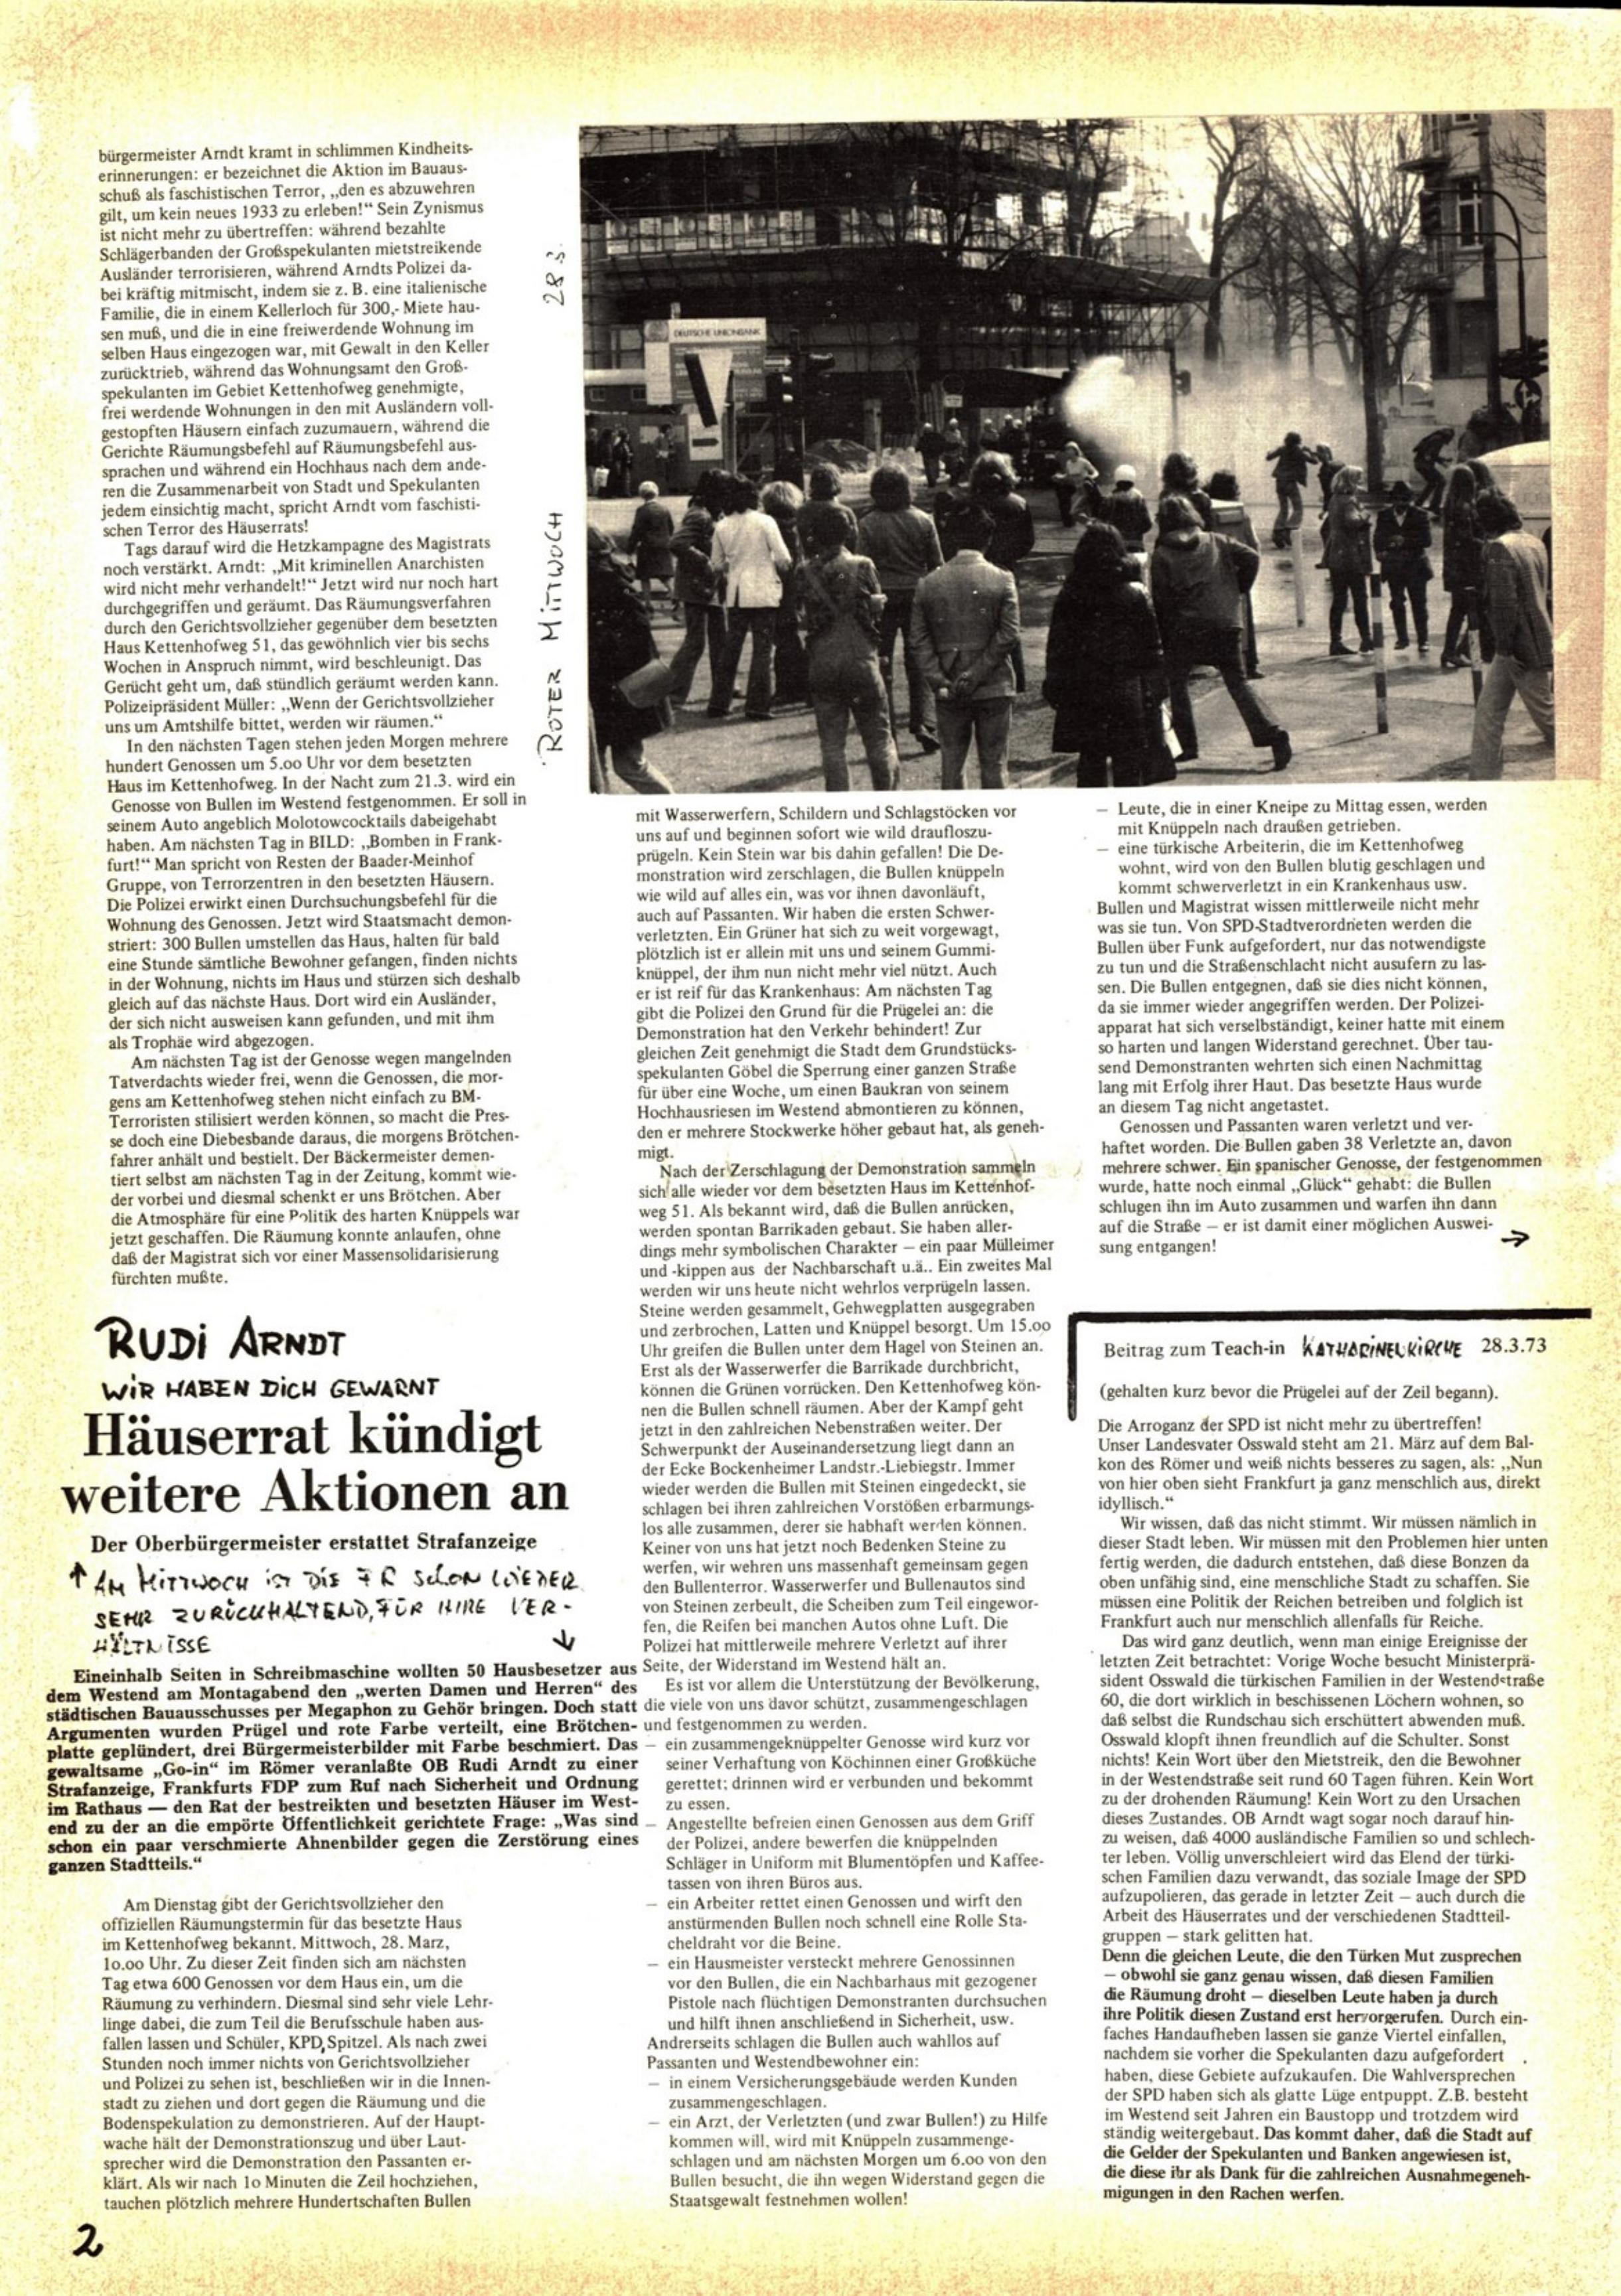 bürgermeister Arndt kramt in schlimmen Kindheits-
erinnerungen: er bezeichnet die Aktion im Bauaus-
schuß als faschistischen Terror, „den es abzuwehren
gilt, um kein neues 1933 zu erleben!“ Sein Zynismus
ist nicht mehr zu übertreffen: während bezahlte
Schlägerbanden der Großspekulanten mietstreikende
Ausländer terrorisieren, während Arndts Polizei da-
bei kräftig mitmischt, indem sie z. B. eine italienische
Familie, die in einem Kellerloch für 300,- Miete hau-
sen muß, und die in eine freiwerdende Wohnung im
selben Haus eingezogen war, mit Gewalt in den Keller
zurücktrieb, während das Wohnungsamt den Groß-
spekulanten im Gebiet Kettenhofweg genehmigte,
frei werdende Wohnungen in den mit Ausländern voll-
gestopften Häusern einfach zuzumauern, während die
Gerichte Räumungsbefehl auf Räumungsbefehl aus-
sprachen und während ein Hochhaus nach dem ande-
ren die Zusammenarbeit von Stadt und Spekulanten
jedem einsichtig macht, spricht Arndt vom faschisti-
schen Terror des Häuserrats!
Tags darauf wird die Hetzkampagne des Magistrats
noch verstärkt. Arndt: „Mit kriminellen Anarchisten
wird nicht mehr verhandelt!“ Jetzt wird nur noch hart
durchgegriffen und geräumt. Das Räumungsverfahren
durch den Gerichtsvollzieher gegenüber dem besetzten
Haus Kettenhofweg 51, das gewöhnlich vier bis sechs
Wochen in Anspruch nimmt, wird beschleunigt. Das
Gerücht geht um, daß stündlich geräumt werden kann.
Polizeipräsident Müller: „Wenn der Gerichtsvollzieher
uns um Amtshilfe bittet, werden wir räumen.“
In den nächsten Tagen stehen jeden Morgen mehrere
hundert Genossen um 5.oo Uhr vor dem besetzten
Haus im Kettenhofweg. In der Nacht zum 21.3. wird ein
Genosse von Bullen im Westend festgenommen. Er soll in
seinem Auto angeblich Molotowcocktails dabeigehabt
haben. Am nächsten Tag in BILD: „Bomben in Frank-
furt!“ Man spricht von Resten der Baader-Meinhof
Gruppe, von Terrorzentren in den besetzten Häusern.
Die Polizei erwirkt einen Durchsuchungsbefehl für die
Wohnung des Genossen. Jetzt wird Staatsmacht demon-
striert: 300 Bullen umstellen das Haus, halten für bald
eine Stunde sämtliche Bewohner gefangen, finden nichts
in der Wohnung, nichts im Haus und stürzen sich deshalb
gleich auf das nächste Haus. Dort wird ein Ausländer,
der sich nicht ausweisen kann gefunden, und mit ihm
als Trophäe wird abgezogen.
Am nächsten Tag ist der Genosse wegen mangelnden
Tatverdachts wieder frei, wenn die Genossen, die mor-
gens am Kettenhofweg stehen nicht einfach zu BM-
Terroristen stilisiert werden können, so macht die Pres-
se doch eine Diebesbande daraus, die morgens Brötchen-
fahrer anhält und bestielt. Der Bäckermeister demen-
tiert selbst am nächsten Tag in der Zeitung, kommt wie-
der vorbei und diesmal schenkt er uns Brötchen. Aber
die Atmosphäre für eine Politik des harten Knüppels war
jetzt geschaffen. Die Räumung konnte anlaufen, ohne
daß der Magistrat sich vor einer Massensolidarisierung
fürchten mußte.
RUDI ARNDT
WIR HABEN DICH GEWARNT
Häuserrat kündigt
weitere Aktionen an
Der Oberbürgermeister erstattet Strafanzeige
↑ AM MITTWOCH IST DIE FR SCHON WIEDER
SEHR ZURÜCKHALTEND, FÜR IHRE VER-
HÄLTNISSE ↓
Eineinhalb Seiten in Schreibmaschine wollten 50 Hausbesetzer aus
dem Westend am Montagabend den „werten Damen und Herren“ des
städtischen Bauausschusses per Megaphon zu Gehör bringen. Doch statt
Argumenten wurden Prügel und rote Farbe verteilt, eine Brötchen-
platte geplündert, drei Bürgermeisterbilder mit Farbe beschmiert. Das
gewaltsame „Go-in“ im Römer veranlaßte OB Rudi Arndt zu einer
Strafanzeige, Frankfurts FDP zum Ruf nach Sicherheit und Ordnung
im Rathaus — den Rat der bestreikten und besetzten Häuser im West-
end zu der an die empörte Öffentlichkeit gerichtete Frage: „Was sind
schon ein paar verschmierte Ahnenbilder gegen die Zerstörung eines
ganzen Stadtteils.“
Am Dienstag gibt der Gerichtsvollzieher den
offiziellen Räumungstermin für das besetzte Haus
im Kettenhofweg bekannt. Mittwoch, 28. Marz,
1o.oo Uhr. Zu dieser Zeit finden sich am nächsten
Tag etwa 600 Genossen vor dem Haus ein, um die
Räumung zu verhindern. Diesmal sind sehr viele Lehr-
linge dabei, die zum Teil die Berufsschule haben aus-
fallen lassen und Schüler, KPD, Spitzel. Als nach zwei
Stunden noch immer nichts von Gerichtsvollzieher
und Polizei zu sehen ist, beschließen wir in die Innen-
stadt zu ziehen und dort gegen die Räumung und die
Bodenspekulation zu demonstrieren. Auf der Haupt-
wache hält der Demonstrationszug und über Laut-
sprecher wird die Demonstration den Passanten er-
klärt. Als wir nach 1o Minuten die Zeil hochziehen,
tauchen plötzlich mehrere Hundertschaften Bullen
2
ROTER MITTWOCH 28.3.
DEUTSCHE UNIONBANK
mit Wasserwerfern, Schildern und Schlagstöcken vor
uns auf und beginnen sofort wie wild draufloszu-
prügeln. Kein Stein war bis dahin gefallen! Die De-
monstration wird zerschlagen, die Bullen knüppeln
wie wild auf alles ein, was vor ihnen davonläuft,
auch auf Passanten. Wir haben die ersten Schwer-
verletzten. Ein Grüner hat sich zu weit vorgewagt,
plötzlich ist er allein mit uns und seinem Gummi-
knüppel, der ihm nun nicht mehr viel nützt. Auch
er ist reif für das Krankenhaus: Am nächsten Tag
gibt die Polizei den Grund für die Prügelei an: die
Demonstration hat den Verkehr behindert! Zur
gleichen Zeit genehmigt die Stadt dem Grundstücks-
spekulanten Göbel die Sperrung einer ganzen Straße
für über eine Woche, um einen Baukran von seinem
Hochhausriesen im Westend abmontieren zu können,
den er mehrere Stockwerke höher gebaut hat, als geneh-
migt.
Nach der Zerschlagung der Demonstration sammeln
sich alle wieder vor dem besetzten Haus im Kettenhof-
weg 51. Als bekannt wird, daß die Bullen anrücken,
werden spontan Barrikaden gebaut. Sie haben aller-
dings mehr symbolischen Charakter — ein paar Mülleimer
und -kippen aus der Nachbarschaft u.ä.. Ein zweites Mal
werden wir uns heute nicht wehrlos verprügeln lassen.
Steine werden gesammelt, Gehwegplatten ausgegraben
und zerbrochen, Latten und Knüppel besorgt. Um 15.oo
Uhr greifen die Bullen unter dem Hagel von Steinen an.
Erst als der Wasserwerfer die Barrikade durchbricht,
können die Grünen vorrücken. Den Kettenhofweg kön-
nen die Bullen schnell räumen. Aber der Kampf geht
jetzt in den zahlreichen Nebenstraßen weiter. Der
Schwerpunkt der Auseinandersetzung liegt dann an
der Ecke Bockenheimer Landstr.-Liebiegstr. Immer
wieder werden die Bullen mit Steinen eingedeckt, sie
schlagen bei ihren zahlreichen Vorstößen erbarmungs-
los alle zusammen, derer sie habhaft werden können.
Keiner von uns hat jetzt noch Bedenken Steine zu
werfen, wir wehren uns massenhaft gemeinsam gegen
den Bullenterror. Wasserwerfer und Bullenautos sind
von Steinen zerbeult, die Scheiben zum Teil eingewor-
fen, die Reifen bei manchen Autos ohne Luft. Die
Polizei hat mittlerweile mehrere Verletzt auf ihrer
Seite, der Widerstand im Westend hält an.
Es ist vor allem die Unterstützung der Bevölkerung,
die viele von uns davor schützt, zusammengeschlagen
und festgenommen zu werden.
— ein zusammengeknüppelter Genosse wird kurz vor
seiner Verhaftung von Köchinnen einer Großküche
gerettet; drinnen wird er verbunden und bekommt
zu essen.
— Angestellte befreien einen Genossen aus dem Griff
der Polizei, andere bewerfen die knüppelnden
Schläger in Uniform mit Blumentöpfen und Kaffee-
tassen von ihren Büros aus.
— ein Arbeiter rettet einen Genossen und wirft den
anstürmenden Bullen noch schnell eine Rolle Sta-
cheldraht vor die Beine.
— ein Hausmeister versteckt mehrere Genossinnen
vor den Bullen, die ein Nachbarhaus mit gezogener
Pistole nach flüchtigen Demonstranten durchsuchen
und hilft ihnen anschließend in Sicherheit, usw.
Andrerseits schlagen die Bullen auch wahllos auf
Passanten und Westendbewohner ein:
— in einem Versicherungsgebäude werden Kunden
zusammengeschlagen.
— ein Arzt, der Verletzten (und zwar Bullen!) zu Hilfe
kommen will, wird mit Knüppeln zusammenge-
schlagen und am nächsten Morgen um 6.oo von den
Bullen besucht, die ihn wegen Widerstand gegen die
Staatsgewalt festnehmen wollen!
— Leute, die in einer Kneipe zu Mittag essen, werden
mit Knüppeln nach draußen getrieben.
— eine türkische Arbeiterin, die im Kettenhofweg
wohnt, wird von den Bullen blutig geschlagen und
kommt schwerverletzt in ein Krankenhaus usw.
Bullen und Magistrat wissen mittlerweile nicht mehr
was sie tun. Von SPD-Stadtverordneten werden die
Bullen über Funk aufgefordert, nur das notwendigste
zu tun und die Straßenschlacht nicht ausufern zu las-
sen. Die Bullen entgegnen, daß sie dies nicht können,
da sie immer wieder angegriffen werden. Der Polizei-
apparat hat sich verselbständigt, keiner hatte mit einem
so harten und langen Widerstand gerechnet. Über tau-
send Demonstranten wehrten sich einen Nachmittag
lang mit Erfolg ihrer Haut. Das besetzte Haus wurde
an diesem Tag nicht angetastet.
Genossen und Passanten waren verletzt und ver-
haftet worden. Die Bullen gaben 38 Verletzte an, davon
mehrere schwer. Ein spanischer Genosse, der festgenommen
wurde, hatte noch einmal „Glück“ gehabt: die Bullen
schlugen ihn im Auto zusammen und warfen ihn dann
auf die Straße — er ist damit einer möglichen Auswei-
sung entgangen! →
Beitrag zum Teach-in KATHARINENKIRCHE 28.3.73
(gehalten kurz bevor die Prügelei auf der Zeil begann).
Die Arroganz der SPD ist nicht mehr zu übertreffen!
Unser Landesvater Osswald steht am 21. März auf dem Bal-
kon des Römer und weiß nichts besseres zu sagen, als: „Nun
von hier oben sieht Frankfurt ja ganz menschlich aus, direkt
idyllisch.“
Wir wissen, daß das nicht stimmt. Wir müssen nämlich in
dieser Stadt leben. Wir müssen mit den Problemen hier unten
fertig werden, die dadurch entstehen, daß diese Bonzen da
oben unfähig sind, eine menschliche Stadt zu schaffen. Sie
müssen eine Politik der Reichen betreiben und folglich ist
Frankfurt auch nur menschlich allenfalls für Reiche.
Das wird ganz deutlich, wenn man einige Ereignisse der
letzten Zeit betrachtet: Vorige Woche besucht Ministerprä-
sident Osswald die türkischen Familien in der Westendstraße
60, die dort wirklich in beschissenen Löchern wohnen, so
daß selbst die Rundschau sich erschüttert abwenden muß.
Osswald klopft ihnen freundlich auf die Schulter. Sonst
nichts! Kein Wort über den Mietstreik, den die Bewohner
in der Westendstraße seit rund 60 Tagen führen. Kein Wort
zu der drohenden Räumung! Kein Wort zu den Ursachen
dieses Zustandes. OB Arndt wagt sogar noch darauf hin-
zu weisen, daß 4000 ausländische Familien so und schlech-
ter leben. Völlig unverschleiert wird das Elend der türki-
schen Familien dazu verwandt, das soziale Image der SPD
aufzupolieren, das gerade in letzter Zeit — auch durch die
Arbeit des Häuserrates und der verschiedenen Stadtteil-
gruppen — stark gelitten hat.
Denn die gleichen Leute, die den Türken Mut zusprechen
— obwohl sie ganz genau wissen, daß diesen Familien
die Räumung droht — dieselben Leute haben ja durch
ihre Politik diesen Zustand erst hervorgerufen. Durch ein-
faches Handaufheben lassen sie ganze Viertel einfallen,
nachdem sie vorher die Spekulanten dazu aufgefordert
haben, diese Gebiete aufzukaufen. Die Wahlversprechen
der SPD haben sich als glatte Lüge entpuppt. Z.B. besteht
im Westend seit Jahren ein Baustopp und trotzdem wird
ständig weitergebaut. Das kommt daher, daß die Stadt auf
die Gelder der Spekulanten und Banken angewiesen ist,
die diese ihr als Dank für die zahlreichen Ausnahmegeneh-
migungen in den Rachen werfen.